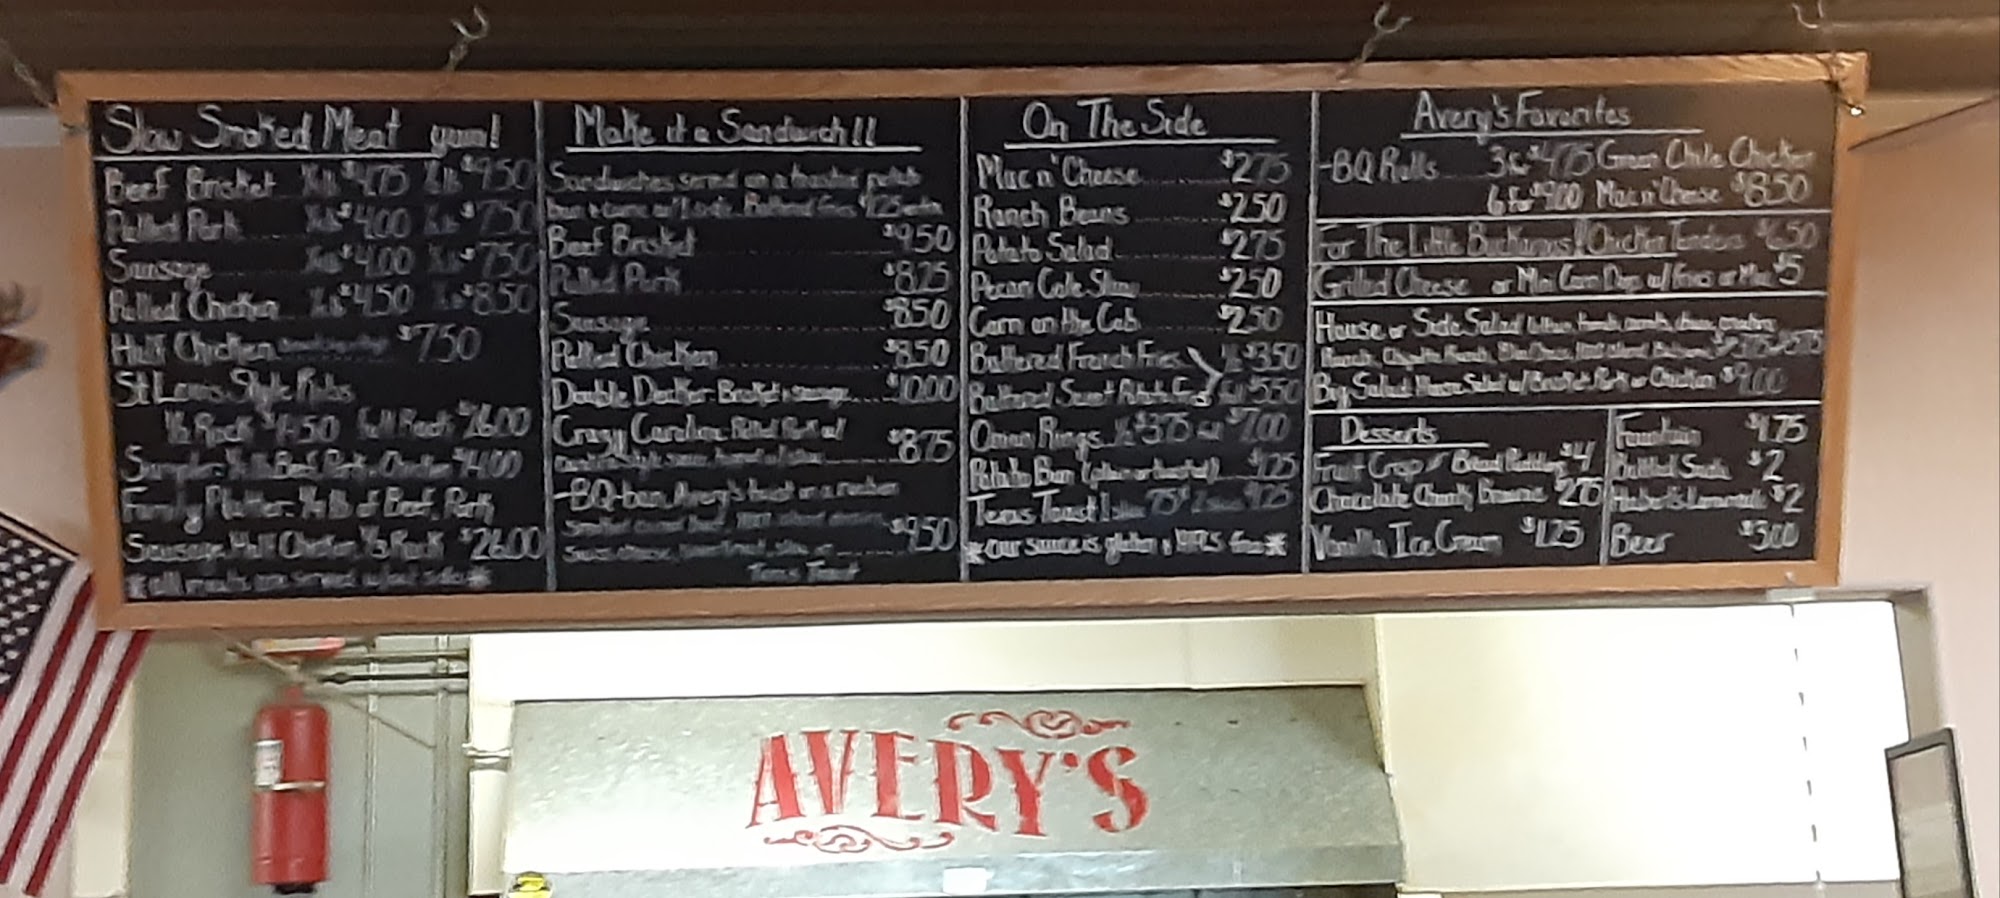 Slow Smoked Meat yum!
Beef Brisket ¼ lb $4.75 ½ lb $9.50
Pulled Pork $4.00 $7.50
Sausage $4.00 $7.50
Pulled Chicken $4.50 $8.50
Half Chicken $7.50
St Louis Style Ribs
½ Rack Full Rack $26.00
Sampler:
Family Platter: ¼ lb of Beef, Pork
Sausage, Half Chicken, ⅓ Rack $26.00
*all meats are served w/out sides*
Make it a Sandwich!!
Sandwiches served on a toasted potato
bun
Beef Brisket $9.50
Pulled Pork $8.25
Sausage $8.50
Pulled Chicken $8.50
Double Decker-Brisket & sausage $10.00
Crazy Carolina Pulled Pork w/ $8.75
-BQ-ban, Avery's twist on a reuben
$9.50
Texas Toast
On The Side
Mac n' Cheese $2.75
Ranch Beans $2.50
Potato Salad $2.75
Pecan Cole Slaw $2.50
Corn on the Cob $2.50
Battered French Fries ½ $3.50
Battered Sweet Potato Fries full $5.50
Onion Rings ½ $3.75 full $7.00
Potato Bun (plain or toasted) $1.25
Texas Toast 1 slice 75¢ 2 slices $1.25
*our sauce is gluten & HFCS free*
Avery's Favorites
-BQ Rolls 3 for $4.75 Green Chile Chicken
6 for $9.00 Mac n' Cheese $8.50
For The Little Buckaroos!! Chicken Tenders $6.50
Grilled Cheese or Mini Corn Dogs w/ Fries or Mac $5
House or Side Salad
Big Salad House Salad w/ Brisket, Pork or Chicken $9.00
Desserts
Fruit Crisp / Bread Pudding $4
Chocolate Chunk Brownie $2.75
Vanilla Ice Cream $1.25
Fountain $1.75
Bottled Soda $2
$2
Beer $3.00
AVERY'S